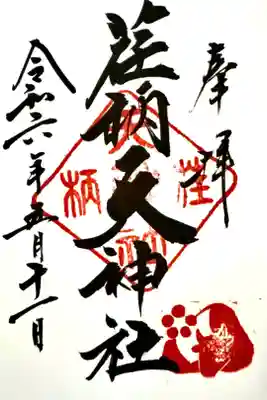 奉拝
荏柄天神社
荏柄
令和六年五月十一日